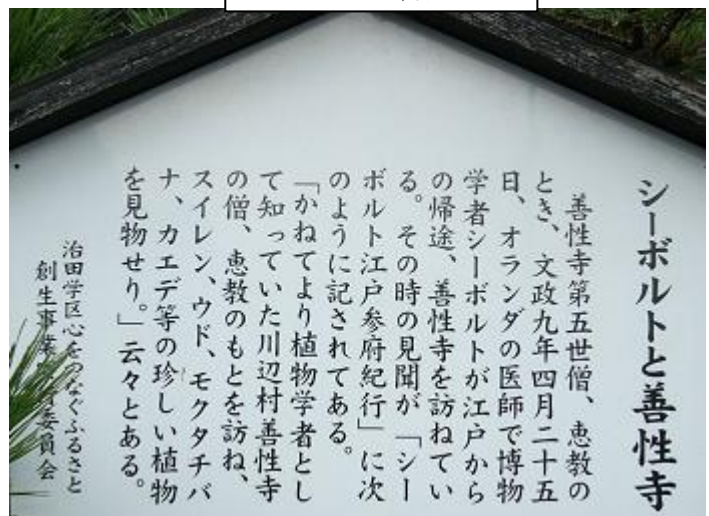 シーボルトと善性寺
善性寺第五世僧、恵教の
とき、文政九年四月二十五
日、オランダの医師で博物
学者シーボルトが江戸から
の帰途、善性寺を訪ねてい
る。その時の見聞が「シー
ボルト江戸参府紀行」に次
のように記されてある。
「かねてより植物学者とし
て知っていた川辺村善性寺
の僧、恵教のもとを訪ね、
スイレン、ウド、モクタチバ
ナ、カエデ等の珍しい植物
を見物せり。」云々とある。
治田学区心をつなぐふるさと
創生事業 委員会